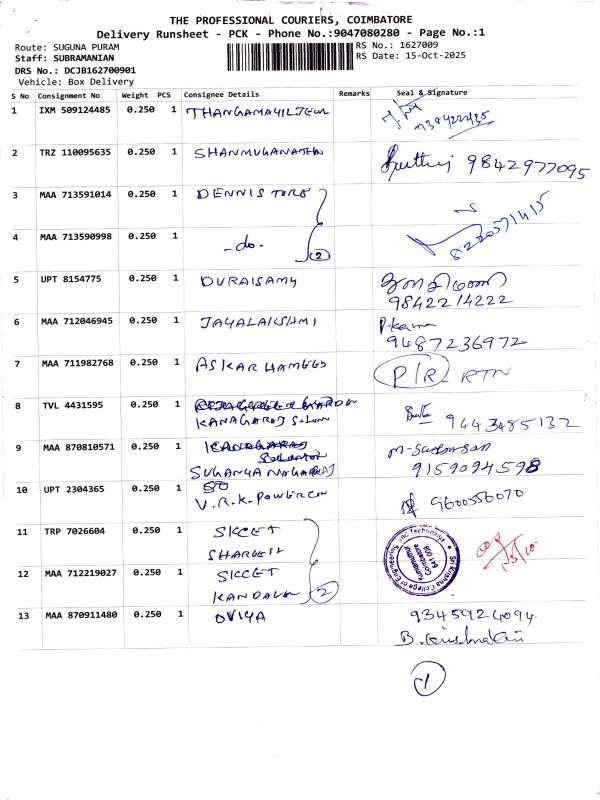 THE PROFESSIONAL COURIERS, COIMBATORE
Delivery Runsheet - PCK - Phone No.:9047080280 - Page No.:1
Route: SUGUNA PURAM
RS No.: 1627009
Staff: SUBRAMANIAN
RS Date: 15-Oct-2025
DRS No.: DCJB162700901
Vehicle: Box Delivery
S No Consignment No Weight PCS Consignee Details Remarks Seal & Signature
1 IXM 509124485 0.250 1 THANGAMAYILJEWL
2 TRZ 110095635 0.250 1 SHANMUGANATHN 9842977095
3 MAA 713591014 0.250 1 DENNIS TORE
4 MAA 713590998 0.250 1 -do- 2 8220571415
5 UPT 8154775 0.250 1 DURAISAMY
9842214222
6 MAA 712046945 0.250 1 JAYALAKSHMI
9487236972
7 MAA 711982768 0.250 1 ASKAR HAMEED P/R - RTN
8 TVL 4431595 0.250 1
KANAGARAJ 9443485132
9 MAA 870810571 0.250 1
SUGANYA NAGARAJ 9159094598
10 UPT 2304365 0.250 1
V.R.K. POWERCON 9600556070
11 TRP 7026604 0.250 1 SKCET
SHARGESH
12 MAA 712219027 0.250 1 SKCET
KANDAVEL 2
Sri Krishna College of Engineering and Technology
Kuniamuthur
Coimbatore
641 008.
13 MAA 870911480 0.250 1 OVIYA 9345924094
1